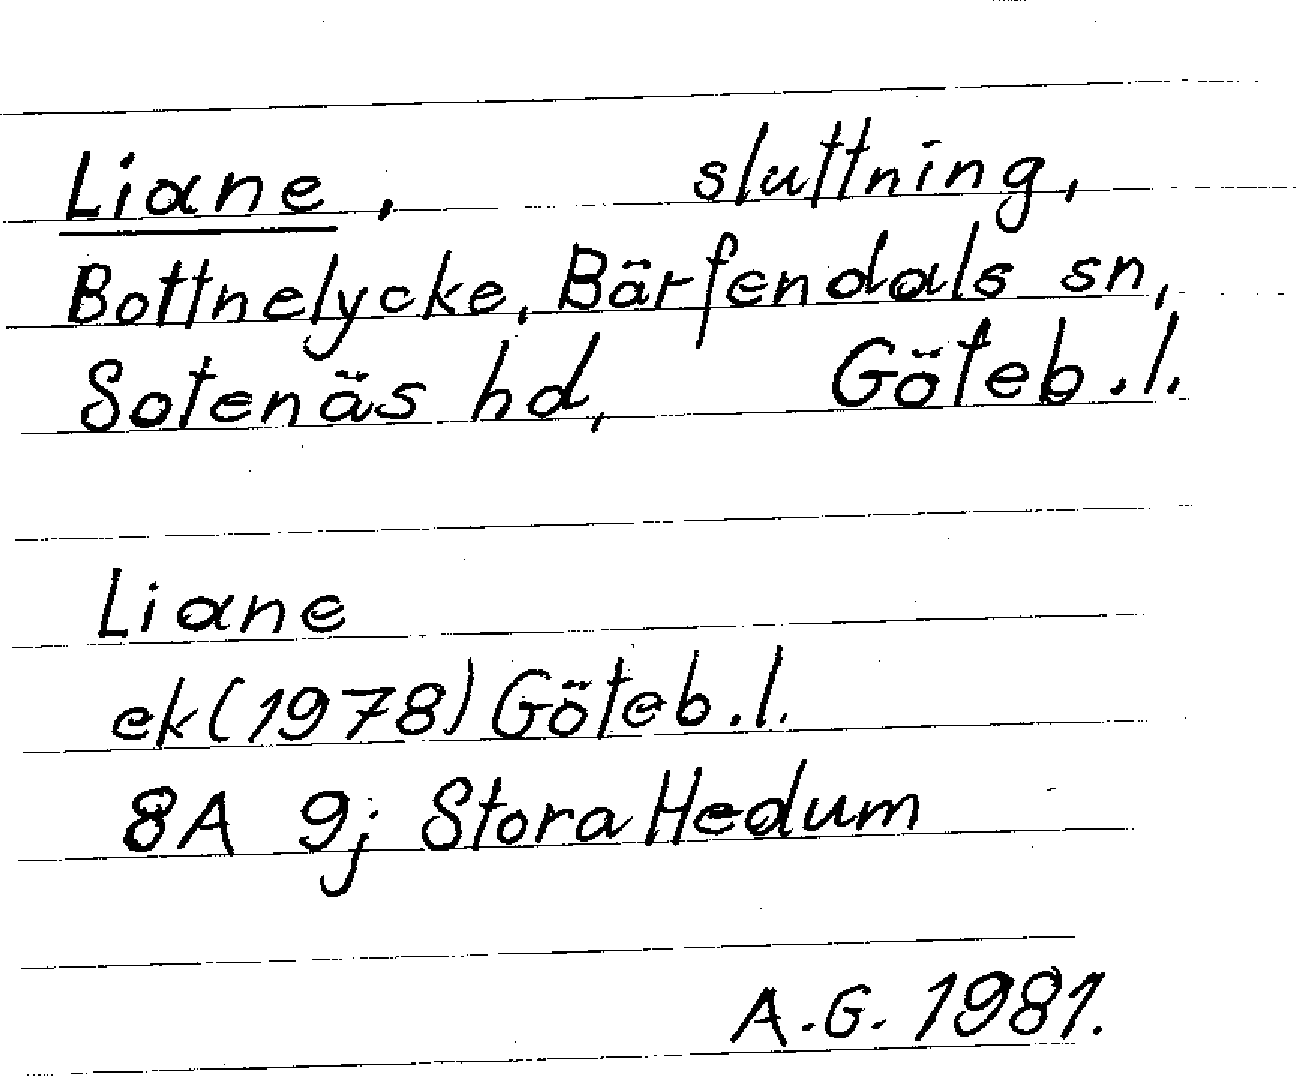 Liane, sluttning,
Bottnelycke, Bärfendals sn,
Sotenäs hd, Göteb.l.
Liane
ek(1978) Göteb.l.
8A 9j Stora Hedum
A.G. 1981.